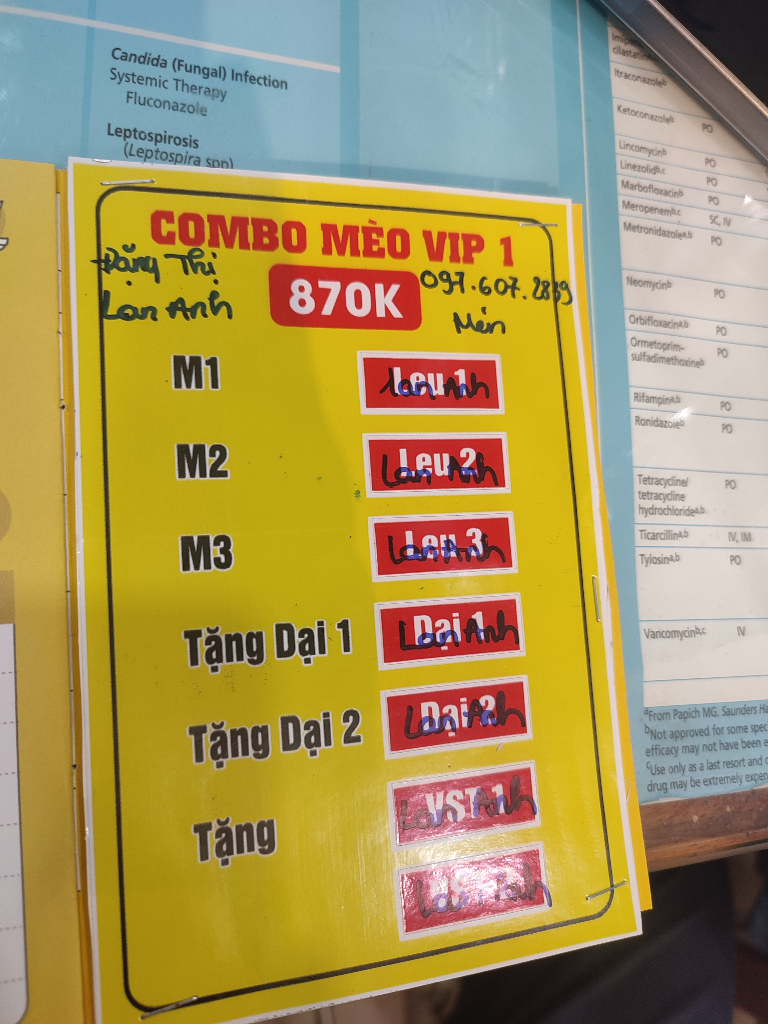 Candida (Fungal) Infection
Systemic Therapy
Fluconazole
Leptospirosis
(Leptospira spp)
COMBO MÈO VIP 1
Đặng Thị
Lan Anh
870K
097.607.2839
Mén
M1
Leu 1
Lan Anh
M2
Leu 2
Lan Anh
M3
Leu 3
Lan Anh
Tặng Dại 1
Dại 1
Lan Anh
Tặng Dại 2
Dại 2
Lan Anh
Tặng
VST 1
Lan Anh
Lan Anh
cilastatin
Itraconazoleᵇ
Ketoconazoleᵇ PO
Lincomycinᵇ PO
Linezolidᵇ,ᶜ PO
Marbofloxacinᵇ PO
Meropenemᵇ,ᶜ SC, IV
Metronidazoleᵃ,ᵇ PO
Neomycinᵇ PO
Orbifloxacinᵃ,ᵇ PO
Ormetoprim– PO
sulfadimethoxineᵇ
Rifampinᵃ,ᵇ PO
Ronidazoleᵇ PO
Tetracycline/ PO
tetracycline
hydrochlorideᵃ,ᵇ
Ticarcillinᵃ,ᵇ IV, IM
Tylosinᵃ,ᵇ PO
Vancomycinᵇ,ᶜ IV
ᵃFrom Papich MG. Saunders
ᵇNot approved for some
efficacy may not have been
ᶜUse only as a last resort and
drug may be extremely